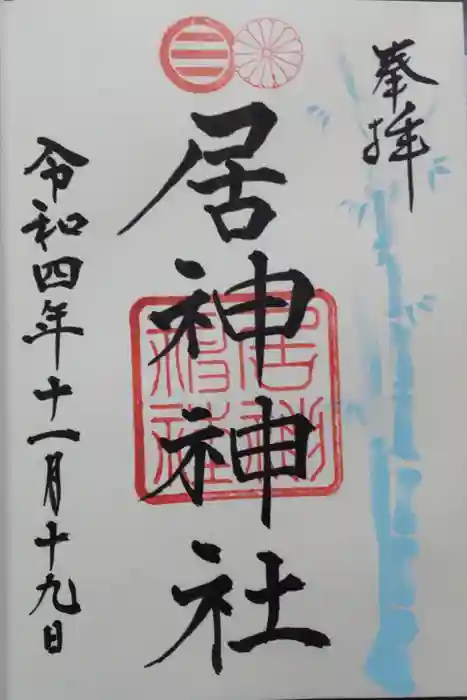 奉拝
居神神社
居神
神社
令和四年十一月十九日